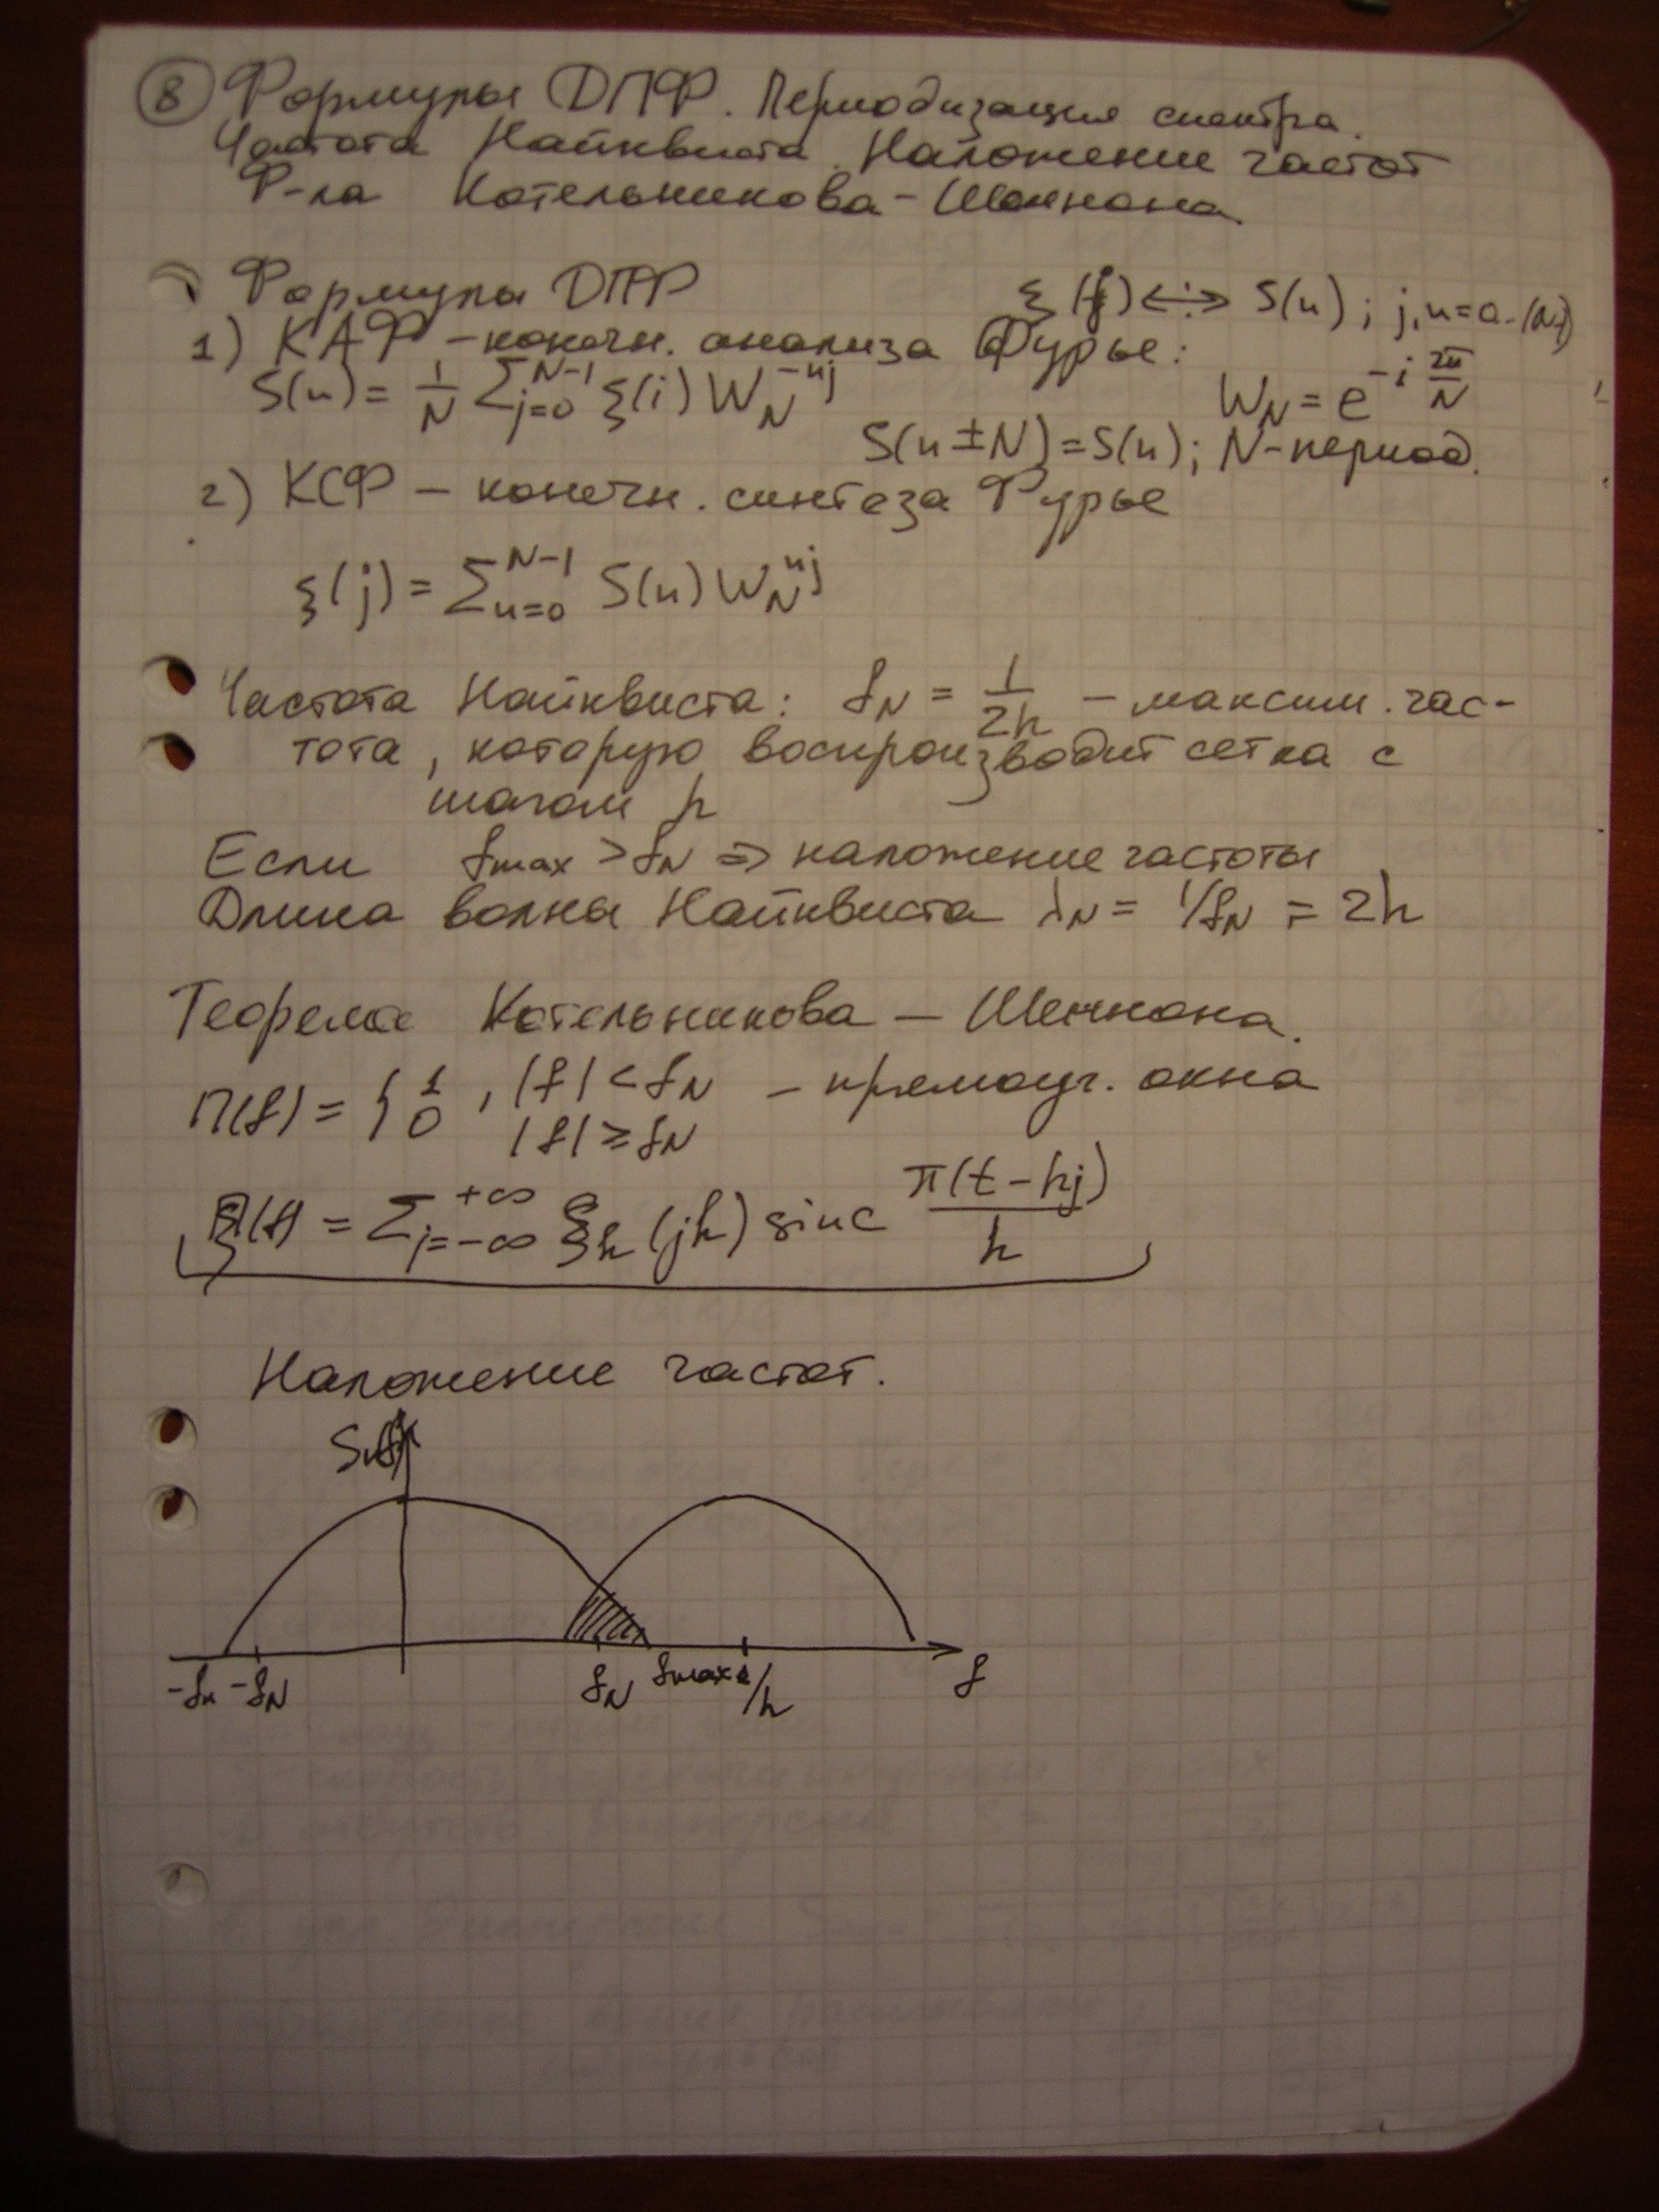 8 Формулы ДПФ. Периодизация спектра.
Частота Найквиста. Наложение частот
Ф-ла Котельникова - Шеннона.
Формулы ДПФ
ξ(j) <÷> S(n); j, n = 0..(N-1)
1) КАФ - конечн. анализа Фурье:
S(n) = 1/N Σ_{j=0}^{N-1} ξ(i) W_N^{-nj}
W_N = e^{-i 2π/N}
S(n ± N) = S(n); N - период.
2) КСФ - конечн. синтеза Фурье
ξ(j) = Σ_{n=0}^{N-1} S(n) W_N^{nj}
Частота Найквиста: f_N = 1/2h - максим. час-
тота, которую воспроизводит сетка с
шагом h
Если f_max > f_N => наложение частоты
Длина волны Найквиста λ_N = 1/f_N = 2h
Теорема Котельникова - Шеннона.
П(f) = { 1, |f| < f_N - прямоуг. окна
0 |f| ≥ f_N
ξ(t) = Σ_{j=-∞}^{+∞} ξ_h (jh) sinc π(t - hj)/h
Наложение частот.
-f_N f_N f_max 1/h f